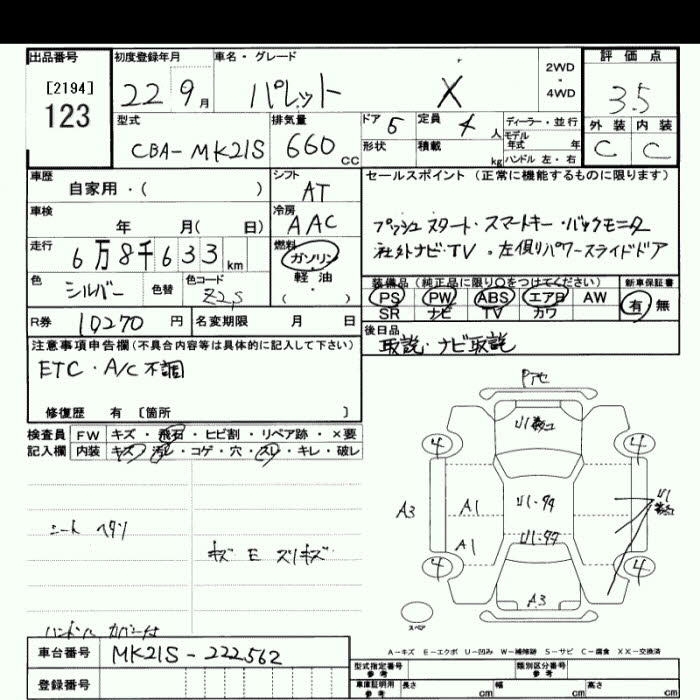 出品番号 初度登録年月 車名・グレード 評価点
[2194] 22 9月 パレット X 2WD・4WD 3.5
123
型式 排気量 ドア 5 定員 4人 ディーラー・並行 外装 内装
CBA-MK21S 660cc 形状 積載 kg モデル年式 年 C C
ハンドル 左・右
車歴 シフト セールスポイント (正常に機能するものに限ります)
自家用・( ) AT
車検 冷房 プッシュスタート・スマートキー・バックモニタ
年 月( 日) AAC 社外ナビ・TV・左側りパワースライドドア
走行 6万8千633km 燃料
ガソリン
軽・油
( )
色 色替 色コード 装備品 (純正品に限り○をつけてください) 新車保証書
シルバー Z2S PS PW ABS エアB AW 有 無
SR ナビ TV カワ
R券 10270円 名変期限 月 日 後日品
取説・ナビ取説
注意事項申告欄(不具合内容等は具体的に記入して下さい)
ETC・A/C不調
修復歴 有 [箇所 ]
検査員 FW キズ・飛石・ヒビ割・リペア跡・×要
記入欄 内装 キズ・汚レ・コゲ・穴・スリ・キレ・破レ
4 4
A3 A1 U1
A1
4 4
シート ヘタリ
キズ E ズリキズ
A3
スペア
ハンドル カバー付
A-キズ E-エクボ U-凹み W-補修跡 S-サビ C-腐食 XX-交換済
車台番号 MK21S-222562
型式指定番号 参考 類別区分番号 参考
登録番号 車庫証明用 参考 長さ cm 幅 cm 高さ cm